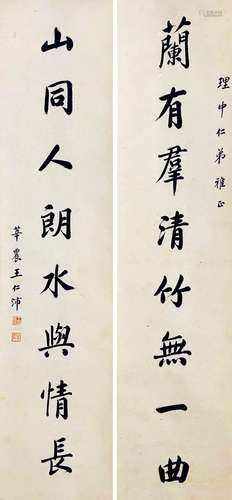 理中仁弟雅正
蘭有羣清竹無一曲
山同人朗水與情長
華農王仁沛